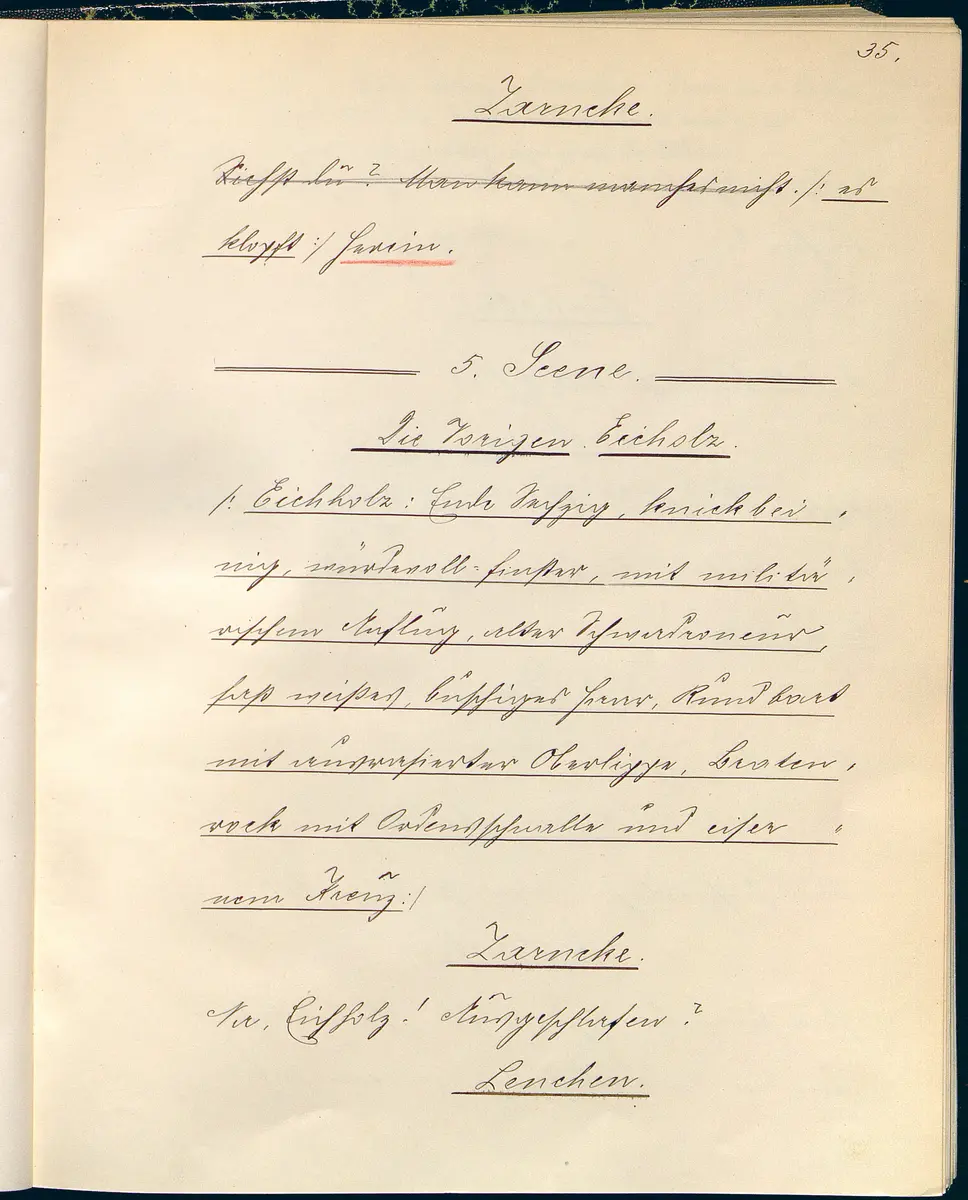 35.
Zarncke.
Siehst du? Man kann manches nicht. /: es
klopft :/ Herein.
5. Scene.
Die Vorigen. Eicholz.
/: Eichholz: Ende Sechzig, knickbei-
nig, würdevoll-finster, mit militä-
rischem Anflug, alter Schwadroneur,
fast weißes, buschiges Haar, Rundbart
mit ausrasierter Oberlippe, Braten-
rock mit Ordensschnalle und eiser-
nem Kreuz :/
Zarncke.
Na, Eichholz! Ausgeschlafen?
Lenchen.